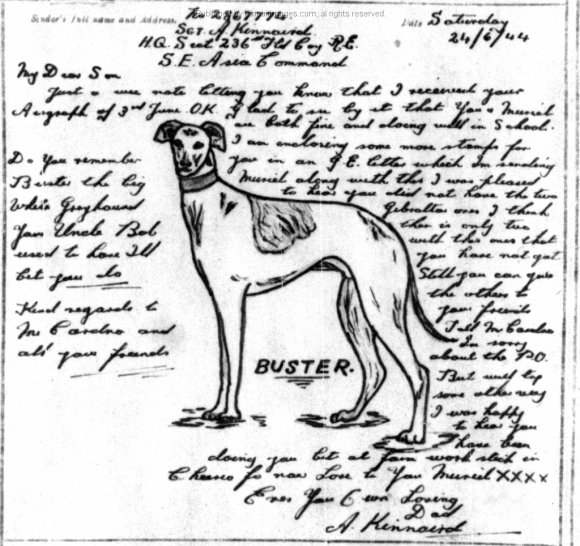 Sender's full name and Address.
No 2967778.
Sgt. A. Kinnaird
H.Q. Sect 236 Fld Coy R.E.
S.E. Asia Command
Date Saturday
24/6/44
My Dear Son
Just a wee note letting you know that I received your
Aergraph of 3rd June O.K. Glad to see by it that You & Muriel
are both fine and doing well in School.
I am enclosing some more stamps for
you in an letter which Im sending
Muriel along with this I was pleased
to hear you did not have the two
Gibraltar ones I think
ther is only two
with this ones that
you have not got
Still you can give
the others to
your friends
Tell Mr
Im sorry
about the P.O.
But well
some other way
I was happy
to hear you
have been
doing you bit at farm work stick in
Cheerio for now Love to You Muriel XXXX
Ever Your Own Loving
Dad
A. Kinnaird
Do You remember
Buster the big
White Greyhound
Your Uncle Bob
used to have I'll
bet you do
Kind regards to
Mr and
all your friends
BUSTER.